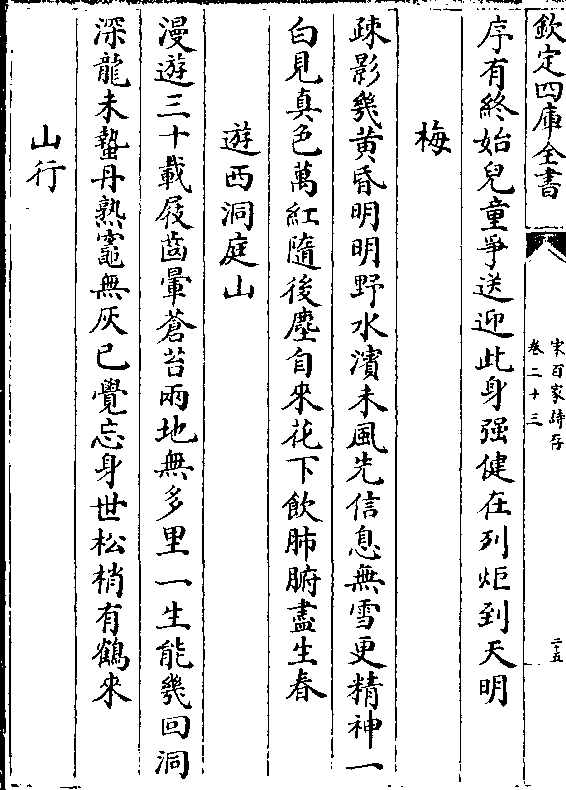 欽定四庫全書
宋百家詩存
卷二十三
二十五
序有終始兒童爭送迎此身强健在列炬到天明
梅
疎影幾黄昏明明野水濱未風先信息無雪更精神一
白見真色萬紅隨後塵自來花下飲肺腑盡生春
遊西洞庭山
漫遊三十載屐齒暈蒼苔兩地無多里一生能幾回洞
深龍未蟄丹熟竈無灰已覺忘身世松梢有鶴來
山行